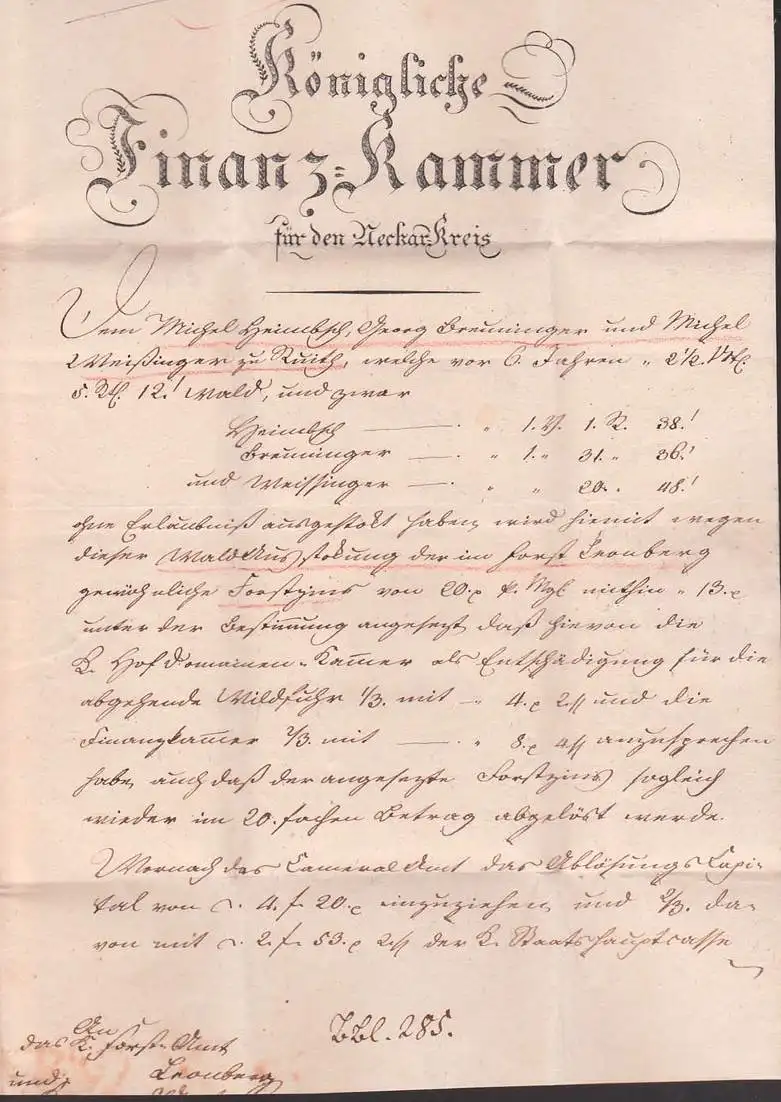 Königliche
Finanz-Kammer
für den Neckar-Kreis
Dem Michel Heimbsch, Georg Breuninger und Michel
Weißinger zu Ruith, welche vor 6. Jahren „ 2 1/2. Vtl.
5. Rth. 12.' Wald, und zwar
Heimbsch — . „ 1. V. 1. R. 38.'
Breuninger — . „ 1. „ 31. „ 36.'
und Weissinger — . „ „ 20. . 48.'
ohne Erlaubniß ausgestokt haben, wird hiemit wegen
dieser Wald Ausstokung der im Forst Leonberg
gewöhnliche Forstzins von 20. x p. Mg. mithin „ 13. x
unter der Bestimmung angesezt, daß hievon die
K. HofDomainen-Kammer als Entschädigung für die
abgehende Wildfuhr 1/3. mit — „ 4. x 2. und die
Finanzkammer 2/3. mit — . „ 8. x 4. anzusprechen
habe, auch daß der angesezte Forstzins sogleich
wieder im 20. fachen Betrag abgelöst werde.
Wornach das CameralAmt das Ablösungs Capi-
tal von 4. f. 20. x einzuziehen, und 2/3. da-
von mit 2. f. 53. x 2. der K. Staatshauptcasse
An
das K. Forst-Amt
285.
und Leonberg